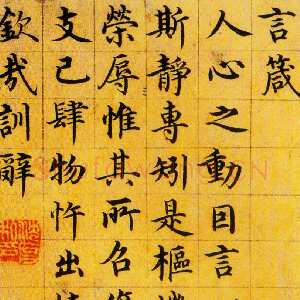 言箴
人心之動囙言
斯靜專矧是樞
榮辱惟其所召
支己肆物忤出
欽哉訓辭